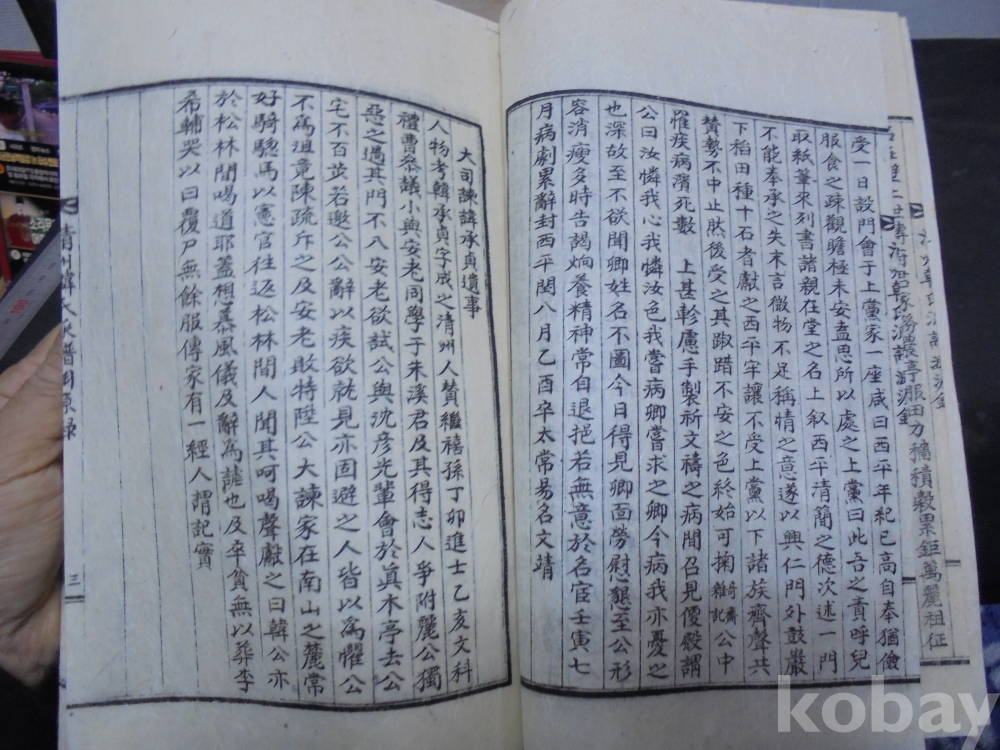 受一日設門會于上黨家一座咸曰西平年紀已高自奉猶儉
服食之疎觀瞻極未安盍思所以處之上黨曰此吾之責呼兒
取紙筆來列書諸親在堂之名上叙西平清簡之德次述一門
不能奉承之失末言微物不足稱情之意遂以興仁門外鼓巖
下稻田種十石者獻之西平牢讓不受上黨以下諸族齊聲共
贊勢不中止然後受之其踧踖不安之色終始可掬 公中
罹疾病濱死數 上甚軫慮手製祈文禱之病間召見便殿謂
公曰汝憐我心我憐汝色我嘗病卿嘗求之卿今病我亦憂之
也深故至不欲聞卿姓名不圖今日得見卿面勞慰懇至公形
容消瘦多時告謁炯養精神常自退挹若無意於名宦壬寅七
月病劇累辭封西平閏八月乙酉卒太常易名文靖
大司諫諱承貞遺事
人物考韓承貞字成之清州人贊繼禧孫丁卯進士乙亥文科
禮曹參議小與安老同學于朱溪君及其得志人爭附麗公獨
惡之過其門不入安老欲試公與沈彦光輩會於眞木亭去公
宅不百步若邀公公辭以疾欲就見亦固避之人皆以爲懼公
不爲沮竟陳疏斥之及安老敗特陞公大諫家在南山之麓常
好騎驄馬以憲官往返松林間人聞其呵喝聲獻之曰韓公亦
於松林間喝道耶蓋想慕風儀及辭爲謔也及卒貧無以葬李
希輔哭以曰覆尸無餘服傳家有一經人謂記實
三
kobay